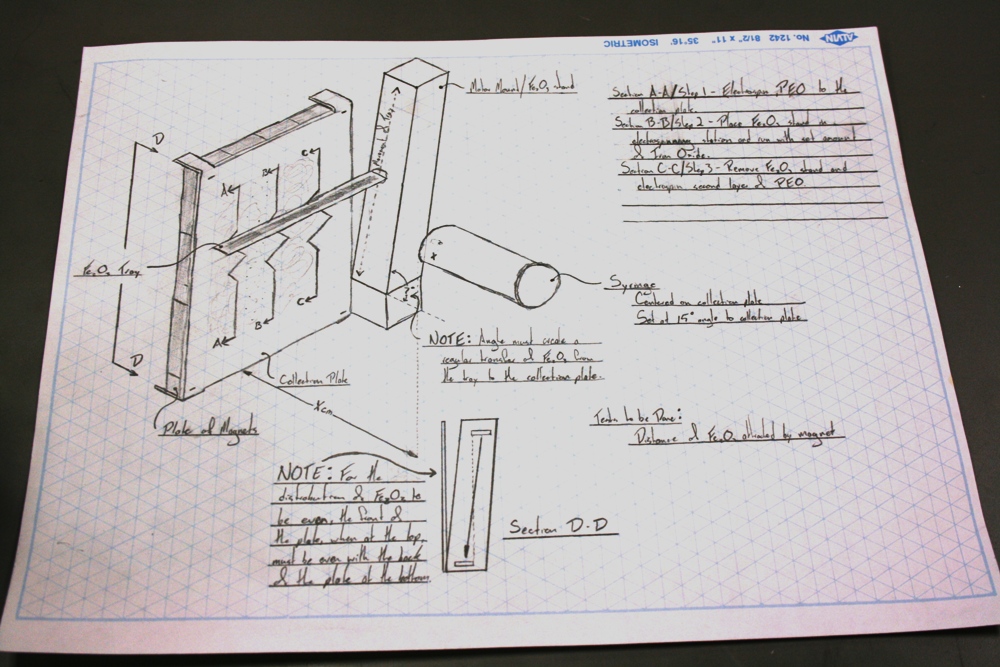 ALVIN No. 1242 8 1/2" x 11" 35°16' ISOMETRIC
Motor Mount/Fe₂O₃ stand
Section A-A/Step 1 - Electrospin PEO to the
collection plate.
Section B-B/Step 2 - Place Fe₂O₃ stand in
electrospinning station and run with set amount
of Iron Oxide.
Section C-C/Step 3 - Remove Fe₂O₃ stand and
electrospin second layer of PEO
D
A
B
C
Movement of Tray
Fe₂O₃ Tray
Syringe
Centered on collection plate
Set at 15° angle to collection plate
?
C
B
A
D
NOTE: Angle must create a
regular transfer of Fe₂O₃ from
the tray to the collection plate.
Collection Plate
X cm
Plate of Magnets
Tests to be Done:
Distance of Fe₂O₃ attracted by magnet
NOTE: For the
distribution of Fe₂O₃ to
be even, the front of
the plate, when at the top,
must be even with the back
of the plate at the bottom.
Section D-D